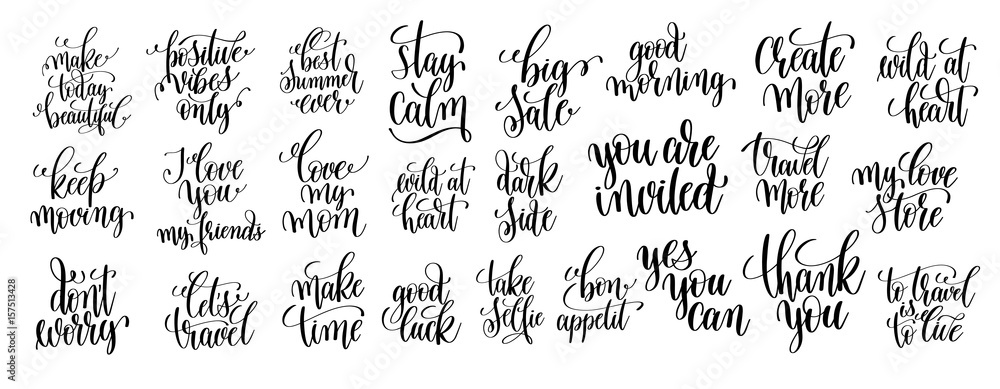 make
today
beautiful
positive
vibes
only
best
summer
ever
stay
calm
big
sale
good
morning
create
more
wild at
heart
keep
moving
I love
you
my friends
love
my
mom
wild at
heart
dark
side
you are
invited
travel
more
my love
store
don't
worry
let's
travel
make
time
good
luck
take
selfie
bon
appetit
yes
you
can
thank
you
to travel
is
to live
Adobe Stock | #157513428